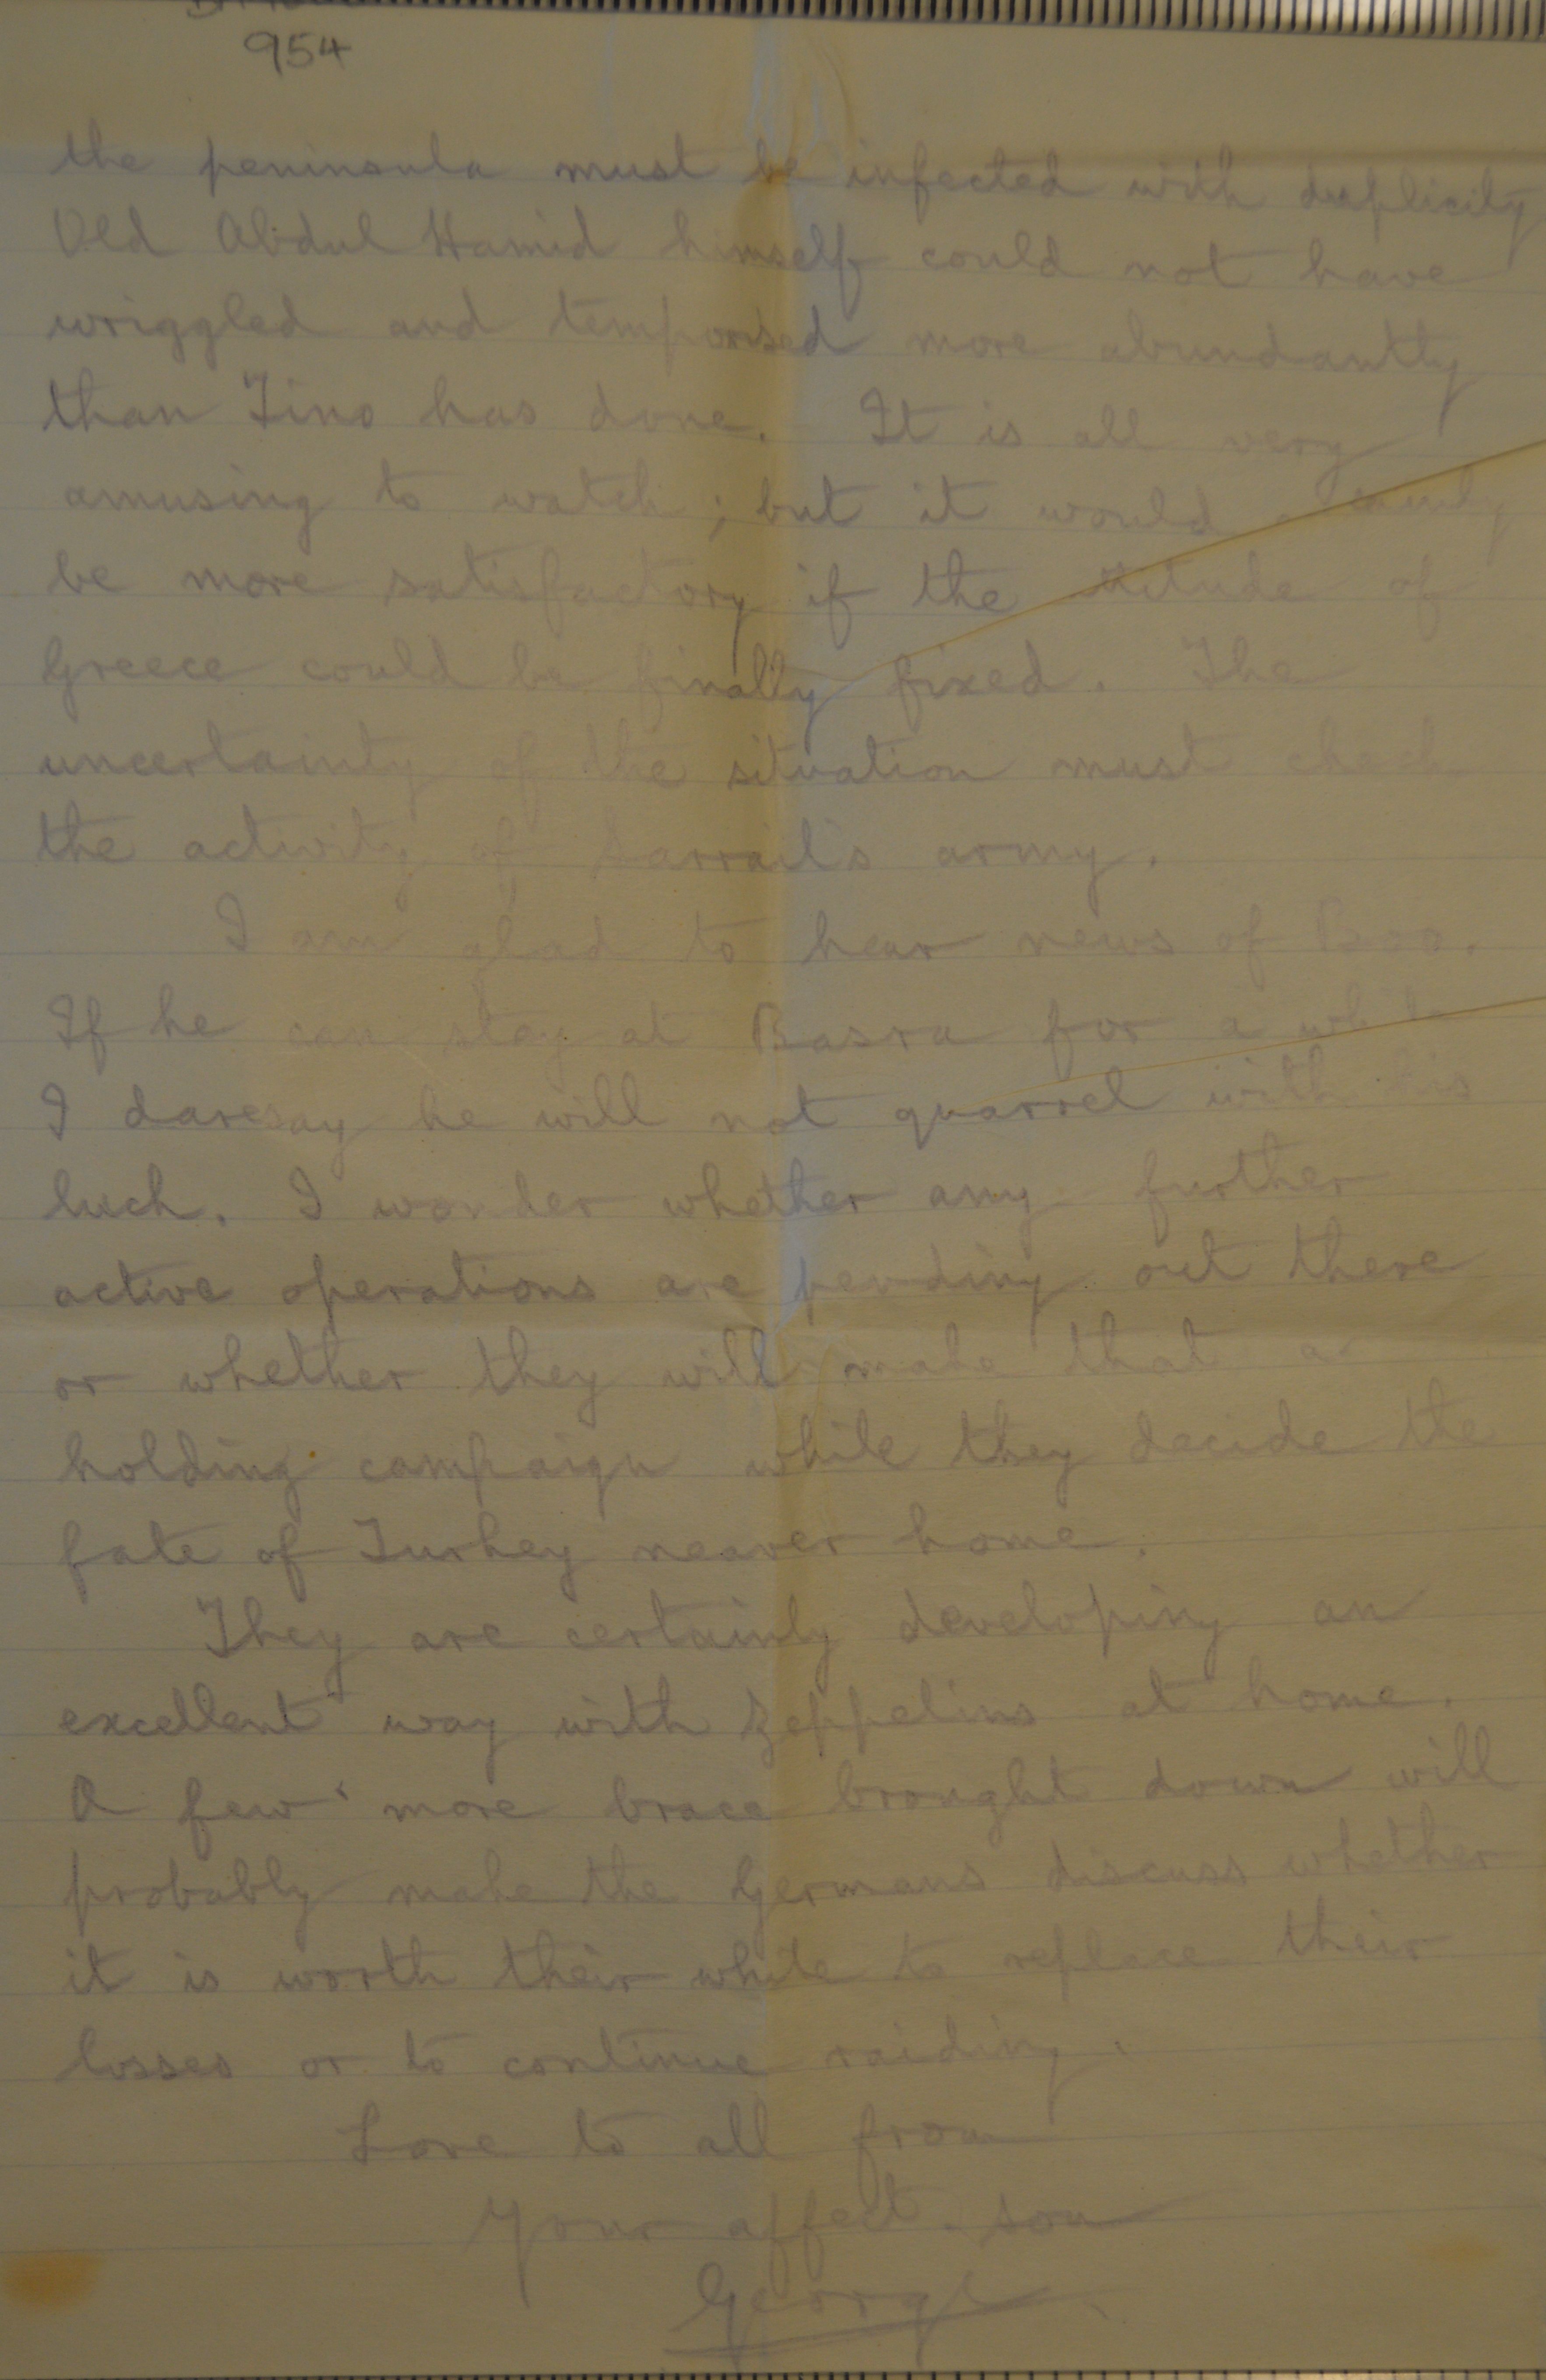 954
the peninsula must be infected with duplicity
Old Abdul Hamid himself could not have
wriggled and temporised more abundantly
than Tino has done. It is all very
amusing to watch; but it would
be more satisfactory if the attitude of
Greece could be finally fixed. The
uncertainty of the situation must check
the activity of Sarrail's army.
I am glad to hear news of Boo.
If he can stay at Basra for a while
I daresay he will not quarrel with his
luck. I wonder whether any further
active operations are pending out there
or whether they will make that a
holding campaign while they decide the
fate of Turkey nearer home.
They are certainly developing an
excellent way with Zeppelins at home.
A few more brace brought down will
probably make the Germans discuss whether
it is worth their while to replace their
losses or to continue raiding.
Love to all from
Your affect. son
George